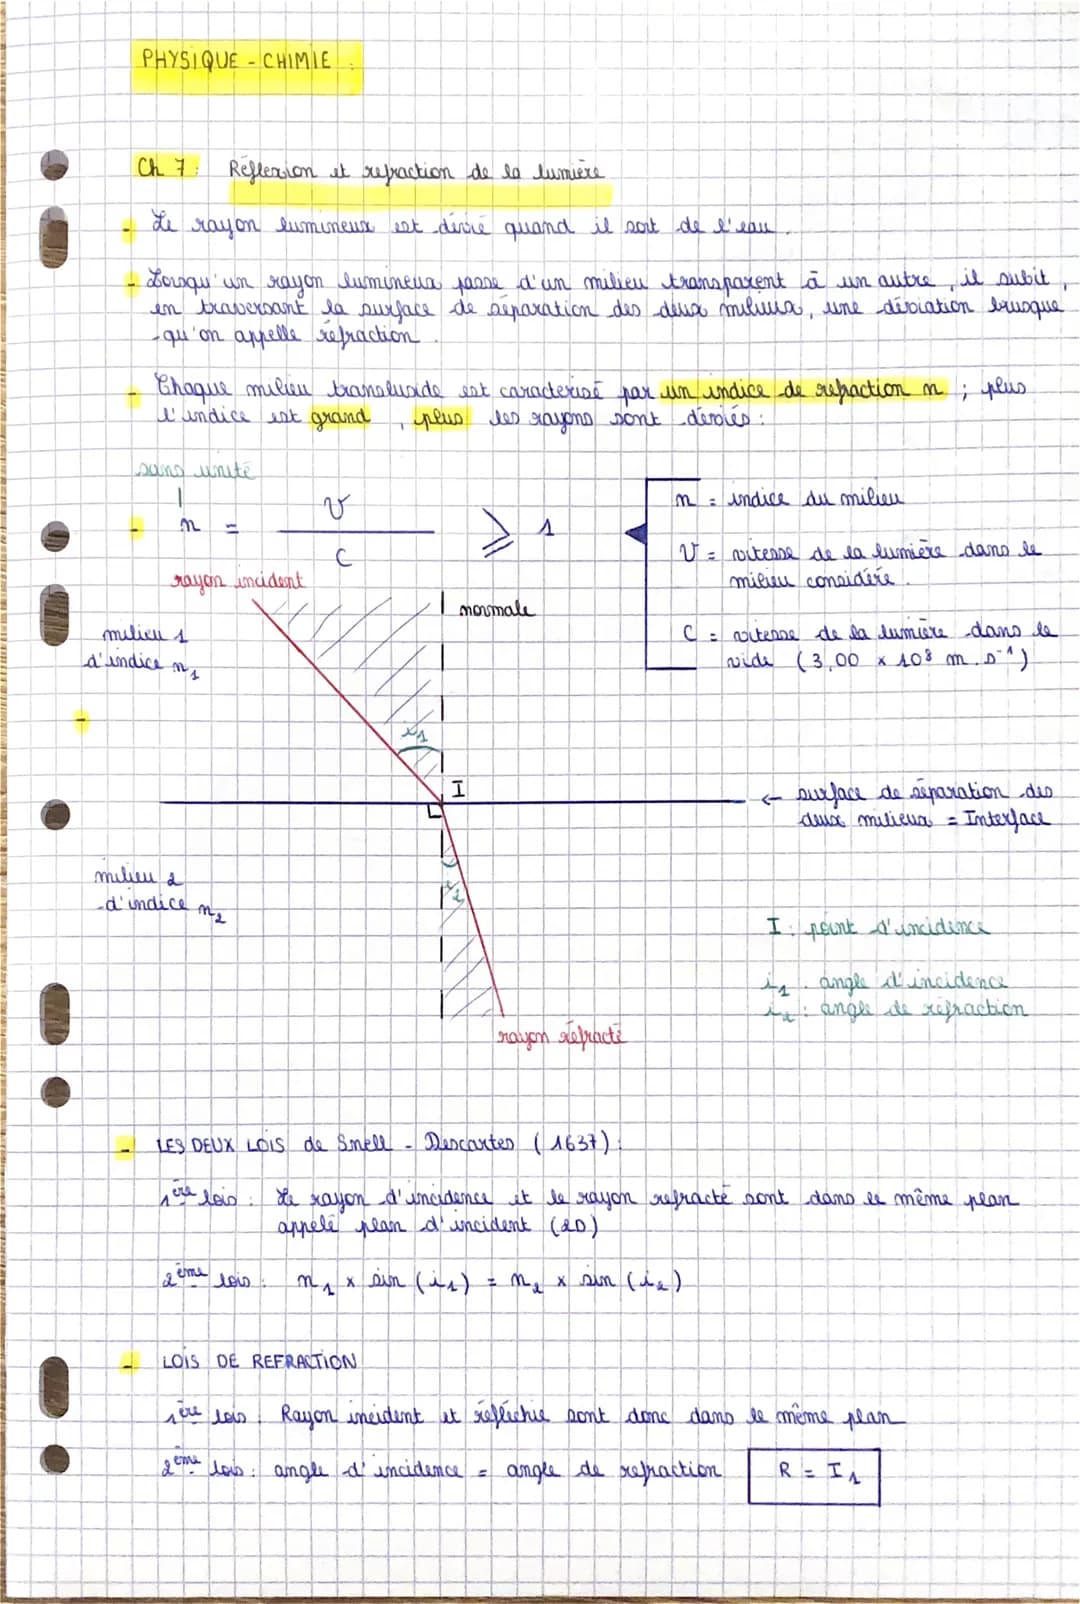 PHYSIQUE - CHIMIE :
Ch 7 : Réflexion et refraction de la lumière
- Le rayon lumineux est dévié quand il sort de l'eau.
- Lorsqu'un rayon lumineux passe d'un milieu transparent à un autre, il subit,
en traversant la surface de séparation des deux milieux, une déviation brusque
qu'on appelle réfraction.
- Chaque milieu transluside est caracterisé par un indice de refraction n ; plus
l'indice est grand, plus les rayons sont déviés :
sans unité
- n = V / C ⩾ 1
n = indice du milieu
V = vitesse de la lumière dans le
milieu considéré.
C = vitesse de la lumière dans le
vide (3,00 × 10⁸ m.s⁻¹)
rayon incident
normale
milieu 1
d'indice n₁
-
i₁
I
← surface de séparation des
deux milieux = Interface
milieu 2
d'indice n₂
i₂
I : point d'incidence
i₁ : angle d'incidence
i₂ : angle de réfraction
rayon réfracté
- LES DEUX LOIS de Snell - Descartes (1637) :
1ère lois : Le rayon d'incidence et le rayon refracté sont dans le même plan
appelé plan d'incident (2D)
2ème lois : n₁ × sin (i₁) = n₂ × sin (i₂)
- LOIS DE REFRACTION
1ère lois : Rayon incident et réfléchie sont donc dans le même plan
2ème lois : angle d'incidence = angle de refraction
R = I₁